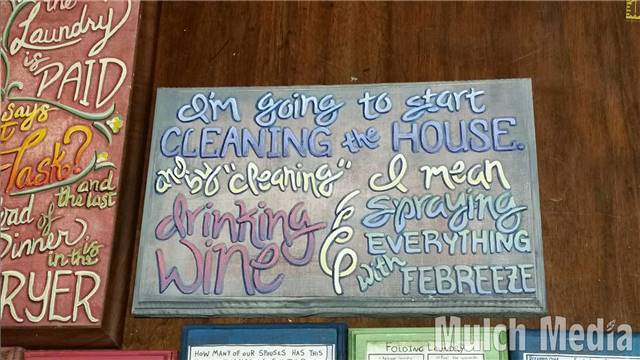 the
Laundry
is
PAID
says
Task?
and
the last
of
Dinner
in the
I'm going to start
CLEANING the HOUSE.
and by "cleaning" I mean
drinking
wine
&
spraying
EVERYTHING
with FEBREEZE
HOW MANY OF OUR SPOUSES HAS THIS
FOLDING LAUNDRY
Mulch Media